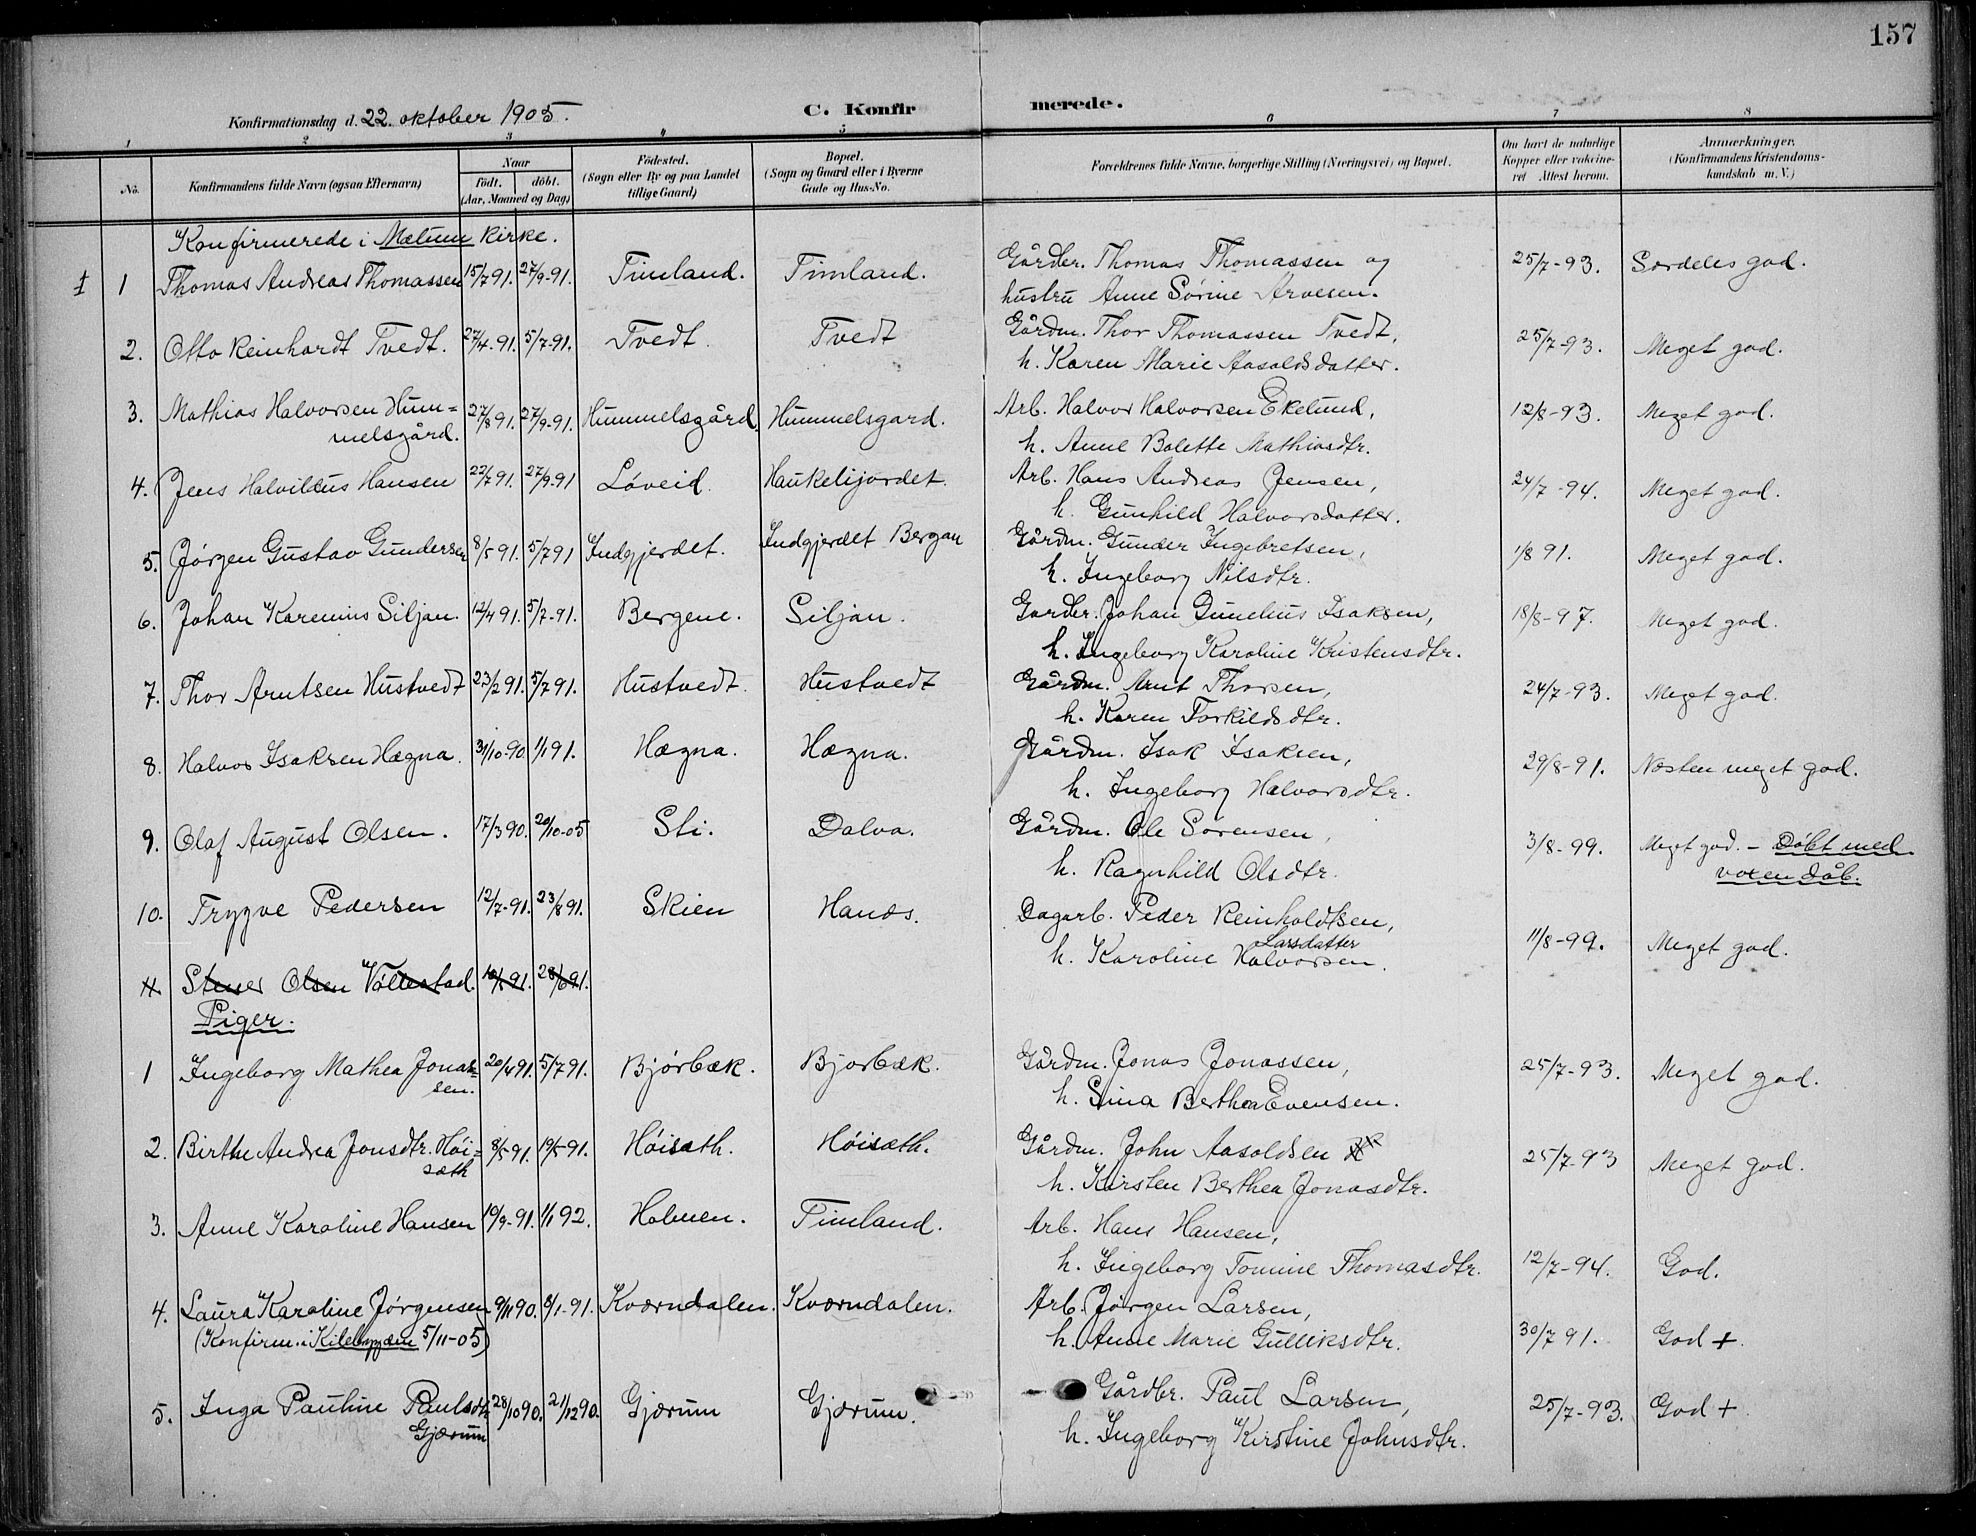 157
Konfirmationsdag d. 22. oktober 1905.
C. Konfir merede.
1 2 3 4 5 6 7 8
No.
Konfirmandens fulde Navn (ogsaa Efternavn)
Naar
født. døbt.
(Aar, Maaned og Dag)
Fødested.
(Sogn eller By og paa Landet
tillige Gaard)
Bopæl.
(Sogn og Gaard eller i Byerne
Gade og Hus-No.
Forældrenes fulde Navne, borgerlige Stilling (Næringsvei) og Bopæl.
Om havt de naturlige
Kopper eller vakcine-
ret Attest herom.
Anmærkninger.
(Konfirmandens Kristendoms-
kundskab m. V.)
Konfirmerede i Mælum Kirke.
1 1 Thomas Andreas Thomassen 15/7 91. 27/9-91. Timland. Timland. Gårdbr. Thomas Thomassen og 25/7-93. Særdeles god.
hustru Anne Sørine Arvesen.
2. Otto Reinhardt Tvedt. 27/4-91. 5/7-91. Tvedt. Tvedt Gårdm. Thor Thomassen Tvedt, 25/7-93. Meget god.
h. Karen Marie Aasoldsdatter.
3. Mathias Halvorsen Hum= 27/8 91. 27/9-91. Hummelsgård. Hummelsgard. Arb. Halvor Halvorsen Ekelund, 12/8-93. Meget god.
melsgård. h. Anne Bolette Mathiasdtr.
4. Jens Halvildus Hansen 22/7 91. 27/9-91 Løveid. Haukelijordet. Arb. Hans Andreas Jensen, 24/7-94. Meget god.
h. Gunhild Halvorsdatter.
5. Jørgen Gustav Gundersen 8/5 91. 5/7 91 Indgjerdet. Indgjerdet Bergan Gårdm. Gunder Ingebretsen, 1/8 91. Meget god.
h. Ingeborg Nilsdtr.
6. Johan Karenius Siljan. 12/4 91. 5/7-91. Bergene. Siljan. Gardbr. Johan Gunelius Isaksen, 18/8-97. Meget god.
h. Ingeborg Karoline Kristensdtr.
7. Thor Arntsen Hustvedt 23/2 91. 5/7 91. Hustvedt. Hustvedt Gårdm. Arnt Thorsen, 24/7-93. Meget god.
h. Karen Torkildsdtr.
8. Halvor Isaksen Hægna. 31/10-90. 1/1 91. Hægna. Hægna. Gårdm. Isak Isaksen, 29/8-91. Næsten meget god.
h. Ingeborg Halvorsdtr.
9. Olaf August Olsen. 17/3 90. 20/10-05 Sti. Dalva. Gårdm. Ole Sørensen, 3/8-99. Meget god. - Døbt med
h. Ragnhild Olsdtr. voxendåb.
10. Trygve Pedersen 12/7-91. 23/8 91. Skien Hanås. Dagarb. Peder Reinholdtsen, 11/8-99. Meget god.
Larsdatter
h. Karoline Halvorsen.
11. Stener Olsen Vollestad. 10/5 91. 28/6 91.
Piger.
1 Ingeborg Mathea Jonas= 20/4 91. 5/7 91. Bjørbæk. Bjorbæk. Gårdm. Jonas Jonassen, 25/7-93. Meget god.
sen. h. Sina Berthea Evensen.
2. Birthe Andrea Jonsdtr. Høi= 8/5 91. 19/5-91. Høisæth. Høisæth. Gårdm. John Aasoldsen 25/7-93 Meget god.
sæth h. Kirsten Berthea Jonasdtr.
3. Anne Karoline Hansen 19/9-91. 1/1 92. Holmen. Timland. Arb. Hans Hansen,
h. Ingeborg Tomine Thomasdtr. 12/7-94. God.
4. Laura Karoline Jørgensen 9/11 90. 8/1-91. Kværndalen. Kværndalen. Arb. Jørgen Larsen,
(Konfirm. i Kilebygden 5/11-05) h. Anne Marie Gulliksdtr. 30/7 91. God +.
5. Inga Pauline Paulsdtr 28/10 90. 21/12 90. Gjærum Gjærum. Gårdbr. Paul Larsen, 25/7-93. God +.
Gjærum h. Ingeborg Kirstine Johnsdtr.